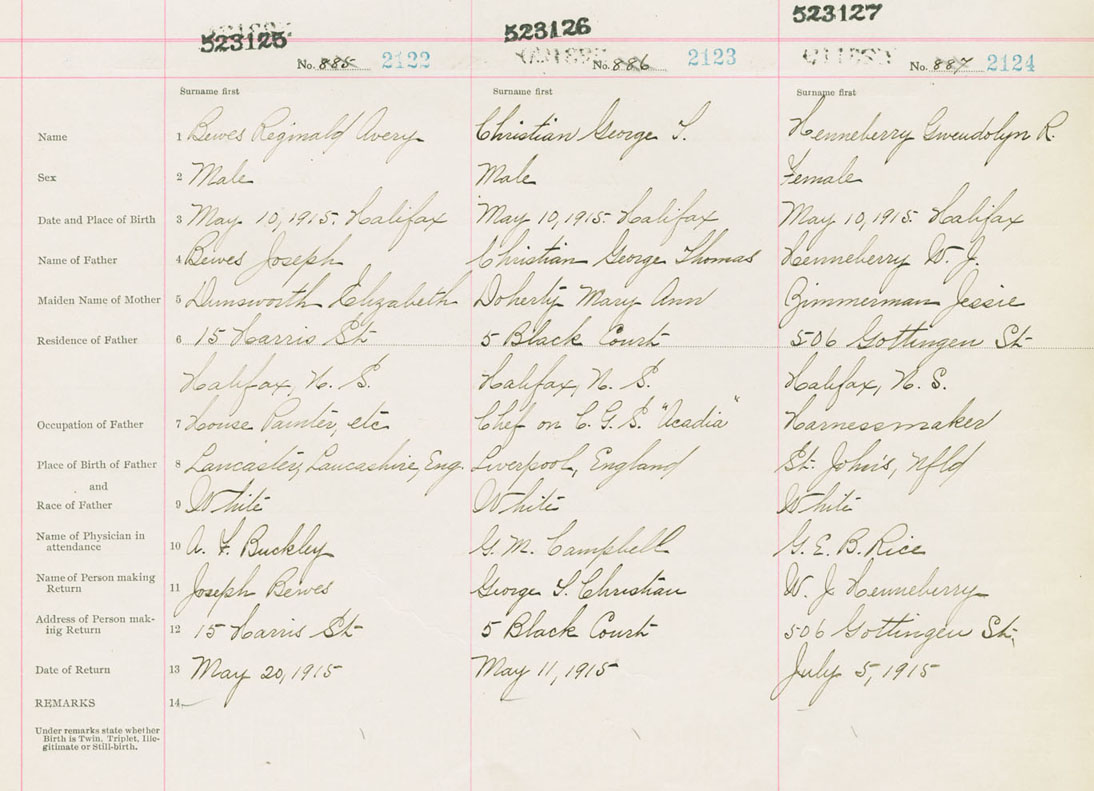 523125 523126 523127
No. 885 2122 No. 886 2123 No. 887 2124
Surname first Surname first Surname first
Name 1 Bewes Reginald Avery Christian George T. Henneberry Gwendolyn R.
Sex 2 Male Male Female
Date and Place of Birth 3 May 10, 1915. Halifax May 10, 1915. Halifax May 10, 1915 Halifax
Name of Father 4 Bewes Joseph Christian George Thomas Henneberry W. J.
Maiden Name of Mother 5 Dunsworth Elizabeth Doherty Mary Ann Zimmerman Jessie
Residence of Father 6 15 Harris St 5 Black Court 506 Gottingen St
Halifax, N. S. Halifax, N. S. Halifax, N. S.
Occupation of Father 7 House Painter, etc Chef on C. G. S. "Acadia" Harnessmaker
Place of Birth of Father 8 Lancaster, Lancashire, Eng. Liverpool, England St. John's, Nfld
and
Race of Father 9 White White White
Name of Physician in
attendance 10 A. F. Buckley G. M. Campbell G. E. B. Rice
Name of Person making
Return 11 Joseph Bewes George T. Christian W. J. Henneberry
Address of Person mak-
ing Return 12 15 Harris St 5 Black Court 506 Gottingen St.
Date of Return 13 May 20, 1915 May 11, 1915 July 5, 1915
REMARKS 14
Under remarks state whether
Birth is Twin, Triplet, Ille-
gitimate or Still-birth.